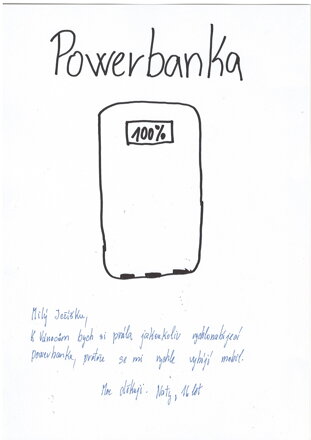 Powerbanka
100%
Milý Ježíšku,
K Vánocům bych si přála jakoukoliv rychlonabíjecí
powerbanku, protože se mi rychle vybíjí mobil.
Moc děkuji. Naty, 16 let